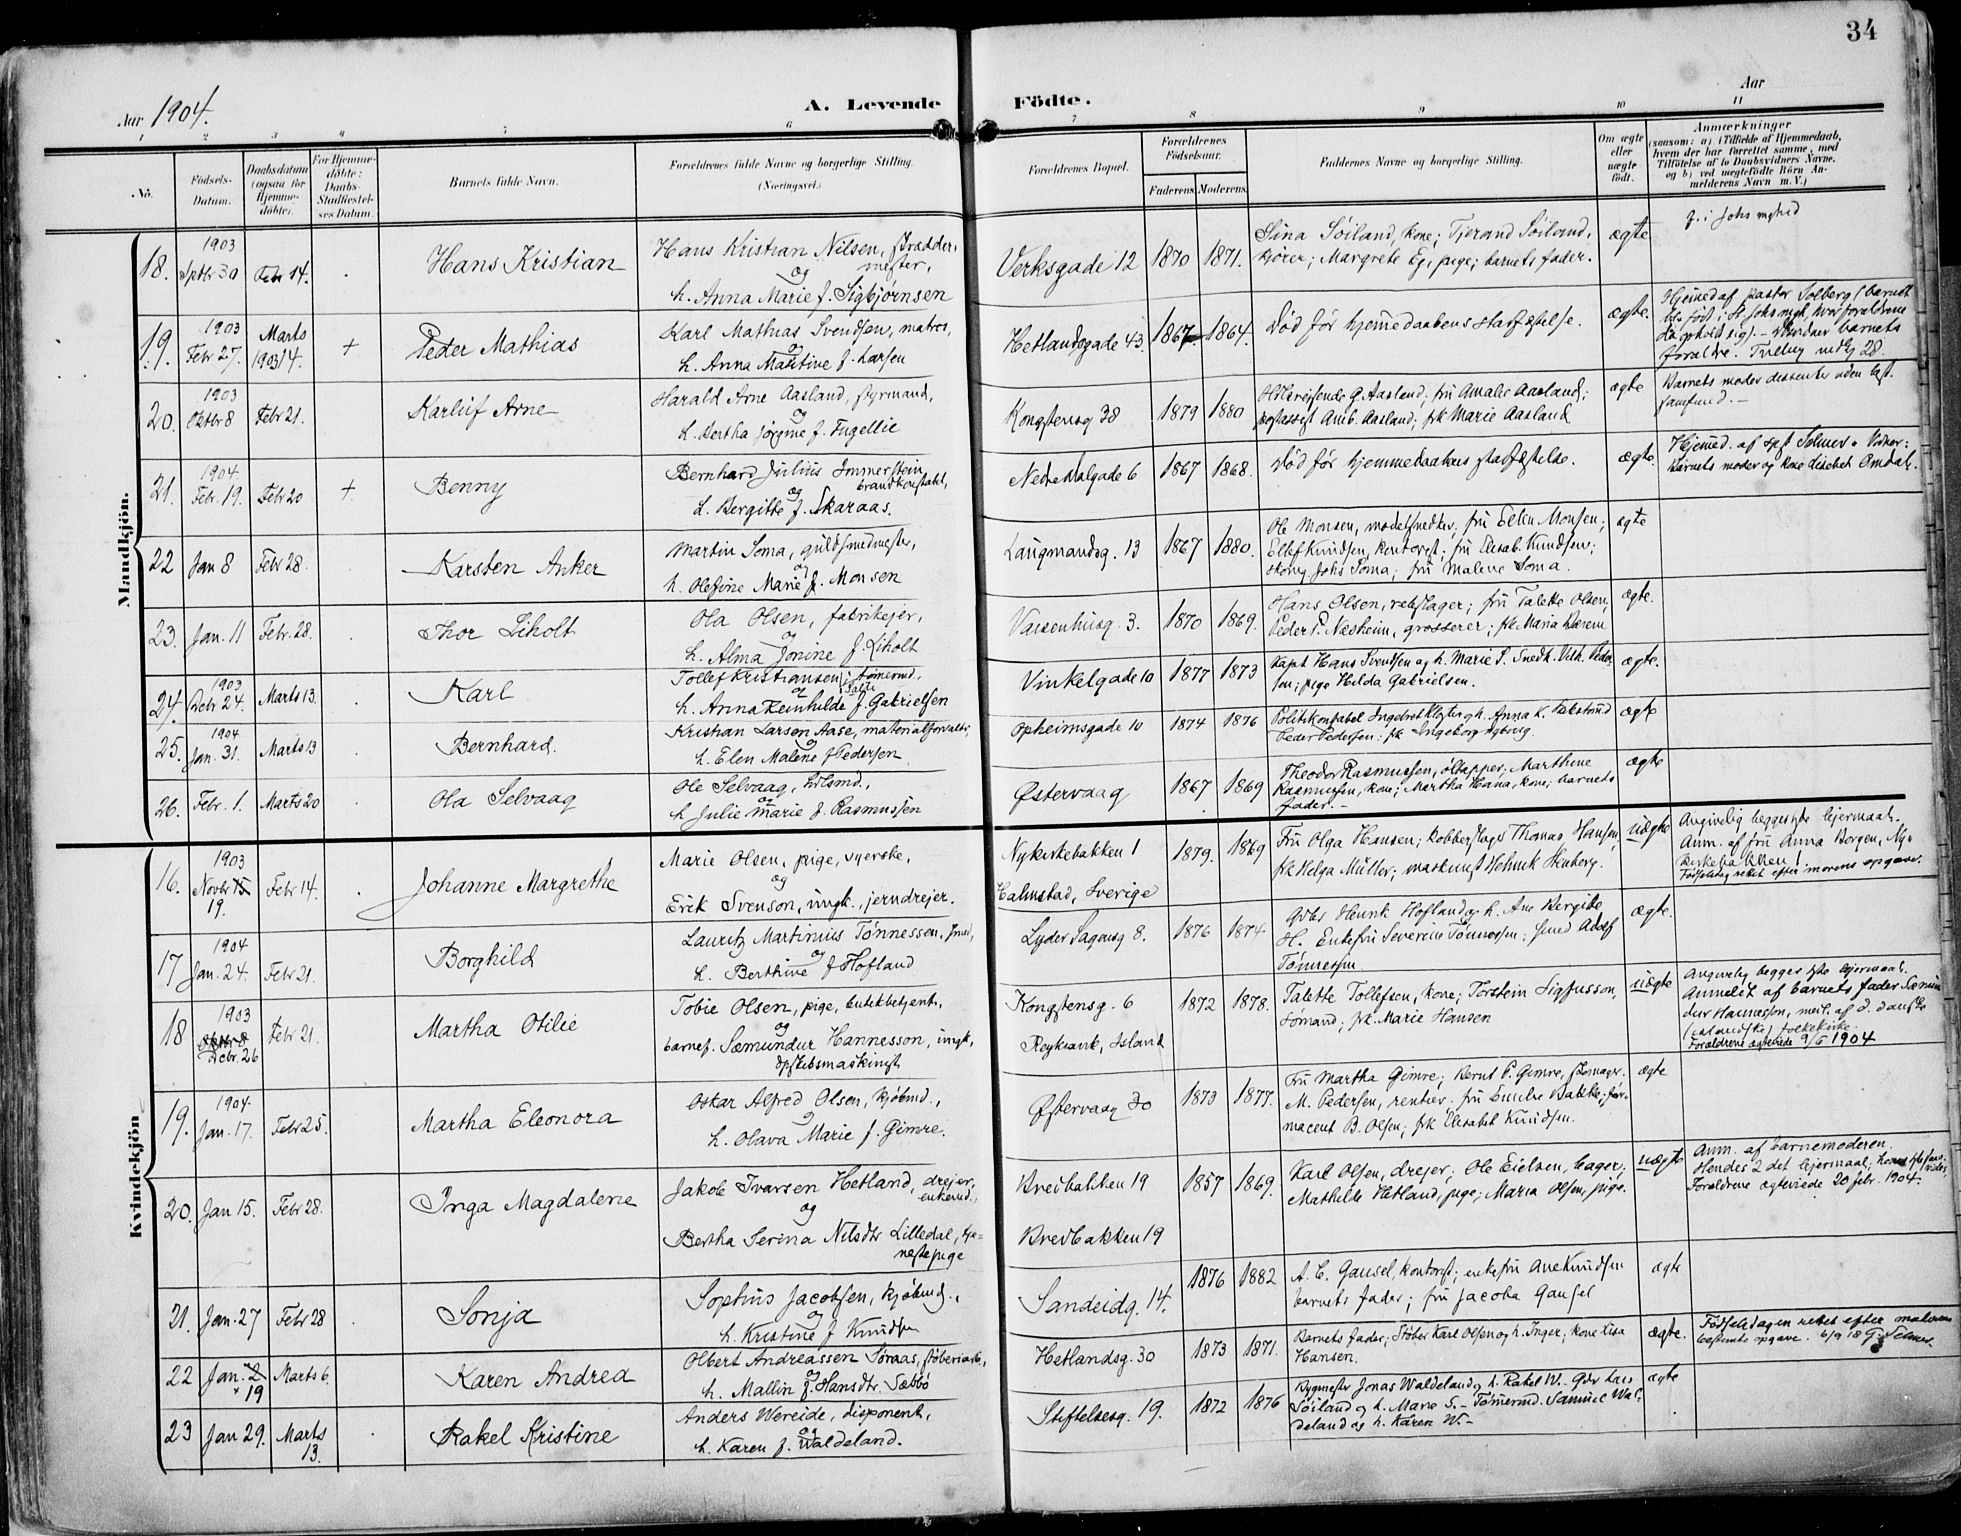 34
Aar 1904.
A. Levende Födte.
Aar
1 2 3 4 5 6 7 8 9 10 11
No.
Födsels-Datum.
Daabsdatum (ogsaa for Hjemme-döbte).
For Hjemme-döbte: Daabs-Stadfæstel-ses Datum.
Barnets fulde Navn.
Forældrenes fulde Navne og borgerlige Stilling. (Næringsvei.)
Forældrenes Bopæl.
Forældrenes Födselsaar.
Faderens. Moderens.
Faddernes Navne og borgerlige Stilling.
Om ægte eller uægte födt.
Anmærkninger
(saasom: a) i Tilfælde af Hjemmedaab, hvem der har forrettet samme, med Tilföielse af to Daabsvidners Navne. og b) ved uegtefödte Börn An-melderens Navn m. V.)
Mandkjön.
18. 1903 Sptbr 30 Febr 14. Hans Kristian
Hans Kristian Nilsen, skrædder-mester,
og
h. Anna Marie f. Sigbjørnsen
Verksgade 12 1870 1871.
Sina Söiland, kone; Tjerand Söiland,
kjører; Margrete Eg, pige; barnets fader.
ægte
f. i Johs mghed
19. 1903 Febr 27. Marts 1903 14. + Peder Mathias
Karl Mathias Svendsen, matros,
og
h. Anna Martine f. Larsen
Hetlandsgade 43. 1867 1864.
Død før hjemmedaabens stadfæstelse.
ægte.
Hjemmed af pastor Solberg (barnet
barnets
forældre.
20. 1903 Oktbr 8 Febr 21. Karluf Arne
Harald Arne Aasland, styrmand,
og
h. Bertha Jørgine f. Fugellie
Kongstensg 38 1879 1880
G. Aasland; fru Amalie Aasland;
Aasland; frk Marie Aasland
ægte
Barnets moder dissenter uden best.
samfund. –
21. 1904. Febr. 19. Febr 20 + Benny
Bernhard Julius Immerstein
brandkonstabl,
og
h. Bergitte f. Skaraas.
Nedre Dalgade 6 1867 1868.
Død før hjemmedaabens stadfæstelse.
ægte.
Hjemmed. af
Barnets moder og kone Lisebet Omdal.
22 Jan 8 Febr 28. Karsten Anker
Martin Soma, guldsmedmester,
og
h. Olefine Marie f. Monsen
Laugmandsg. 13 1867 1880.
Ole Monsen, modelsnedker, fru Ellen Monsen;
Ellef Knudsen, kontorist. fru Elisab. Knudsen;
Johs Soma; fru Malene Soma.
ægte
23. Jan. 11 Febr. 28. Thor Liholt
Ola Olsen, fabrikejer,
og
h. Alma Jonine f. Liholt
Vaisenhusg. 3. 1870 1869.
Hans Olsen, rebslager; fru Talette Olsen,
Peder P. Næsheim, grosserer; frk Maria
ægte.
24. 1903 Dcbr 24. Marts 13. Karl
Tollef Kristiansen, tömmermd.
og
h. Anna Reinhilde f. Gabrielsen
Vinkelgade 10 1877 1873
Kapt Hans Svendsen og h. Marie S. Snedk. Vilh. Peder
sen; pige Hilda Gabrielsen.
ægte.
25. 1904 Jan. 31. Marts 13 Bernhard.
Kristian Larsen Aase, materialforvalter,
og
h. Elen Malene f Pedersen
Opheimsgade 10 1874 1876
Politikonstabel Ingebret h. Anna K.
Peder Pedersen; frk Ingeborg
ægte
26. Febr. 1. Marts 20 Ola Selvaag
Ole Selvaag,
og
h Julie Marie f. Rasmussen
Østervaag 1867 1869
Theodor Rasmussen, öltapper, Marthine
Rasmussen, kone; Martha Hana, kone; barnets
fader. –
ægte
Kvindekjön
16. 1903 Novbr 15 19. Febr 14. Johanne Margrethe
Marie Olsen, pige, syerske,
og
Erik Svenson, ungk., jerndreier.
Nykirkebakken 1 1879. 1869
Halmstad, Sverige
Fru Olga Hansen; kobberslager Thomas Hansen,
frk Helga Müller; maskinist Henrik Stenberg.
uægte
Angivelig begges 1ste lejermaal.
Anm. af fru Anna Borgen, Ny-
kirkebakken 1
Födselsdag rettet efter morens opgave.
17 1904 Jan. 24. Febr 21. Borghild
Lauritz Martinius Tönnessen, smed,
og
h. Berthine f Hofland
Lyder Sagensg 8. 1876 1874
Henrik Hofland og h. Ane Bergite
H. Enkefru Severine Tönnessen; smed Adolf
Tönnessen
ægte.
18 1903 Dcbr. 26 Febr 21. Martha Otilie
Tobie Olsen, pige, butikbetjent,
og
barnef. Sæmundur Hannesson, ungk,
Kongstensg. 6 1872 1878.
Reykiavik, Island
Talette Tollefsen, kone; Torstein Sigfusson,
sömand; frk. Marie Hansen
uægte
Angivelig begges 1ste lejermaal.
Anmeldt af barnets fader Sæmun
dur Hannesson, medl. af d. danske
(islandske) folkekirke.
Forældrene ægteviede 9/5 1904
19. 1904. Jan. 17. Febr 25. Martha Eleonora
Oskar Alfred Olsen, kjöbmd.,
og
h. Olava Marie f. Gimre.
Østervaag 30 1873 1877.
Fru Martha Gimre; Bernt P. Gimre,
M. Pedersen, rentier. fru Emilie Bakke; far-
maceut B. Olsen; frk Elisabet Knudsen.
ægte
20. Jan 15. Febr 28. Inga Magdalene
Jakob Ivarsen Hetland, drejer,
enkemd,
og
Bertha Serina Nilsdtr Lilledal, tje-
nestepige
Bredbakken 19 1857 1869.
Bredbakken 19
Karl Olsen, drejer; Ole Eielsen, bager;
Mathilde Hetland, pige; Maria Olsen, pige.
uægte
Anm. af barnemoderen.
Hendes 2 det lejermaal;
Forældrene ægteviede 20 febr. 1904.
21. Jan. 27 Febr 28 Sonja
Sophus Jacobsen, kjöbmd.,
og
h. Kristine f Knudsen
Sandeidg. 14. 1876 1882
A. C. Gausel, kontorist; enkefru Ane Knudsen
barnets fader; fru Jacoba Gausel
ægte
22 Jan. 2 19 Marts 6. Karen Andrea
Olbert Andreassen Søraas, støberiarb.,
og
h. Mallin f. Hansdtr. Sæbbö
Hetlandsg. 30 1873 1871.
Barnets fader; Stöber Karl Olsen og h. Inger; kone Lisa
Hansen.
ægte.
Födselsdagen rettet efter moderens
bestemte opgave. 6/9 18
23 Jan 29. Marts 13. Rakel Kristine
Anders Wereide, disponent,
og
h. Karen f. Waldeland.
Stiftelsesg. 19. 1872 1876
Bygmester Jonas Waldeland og h. Rakel W. – Gdr Lars
Söiland og h. Marie S. – Tømmermd. Samuel Wal-
deland og h. Karen W. –
ægte